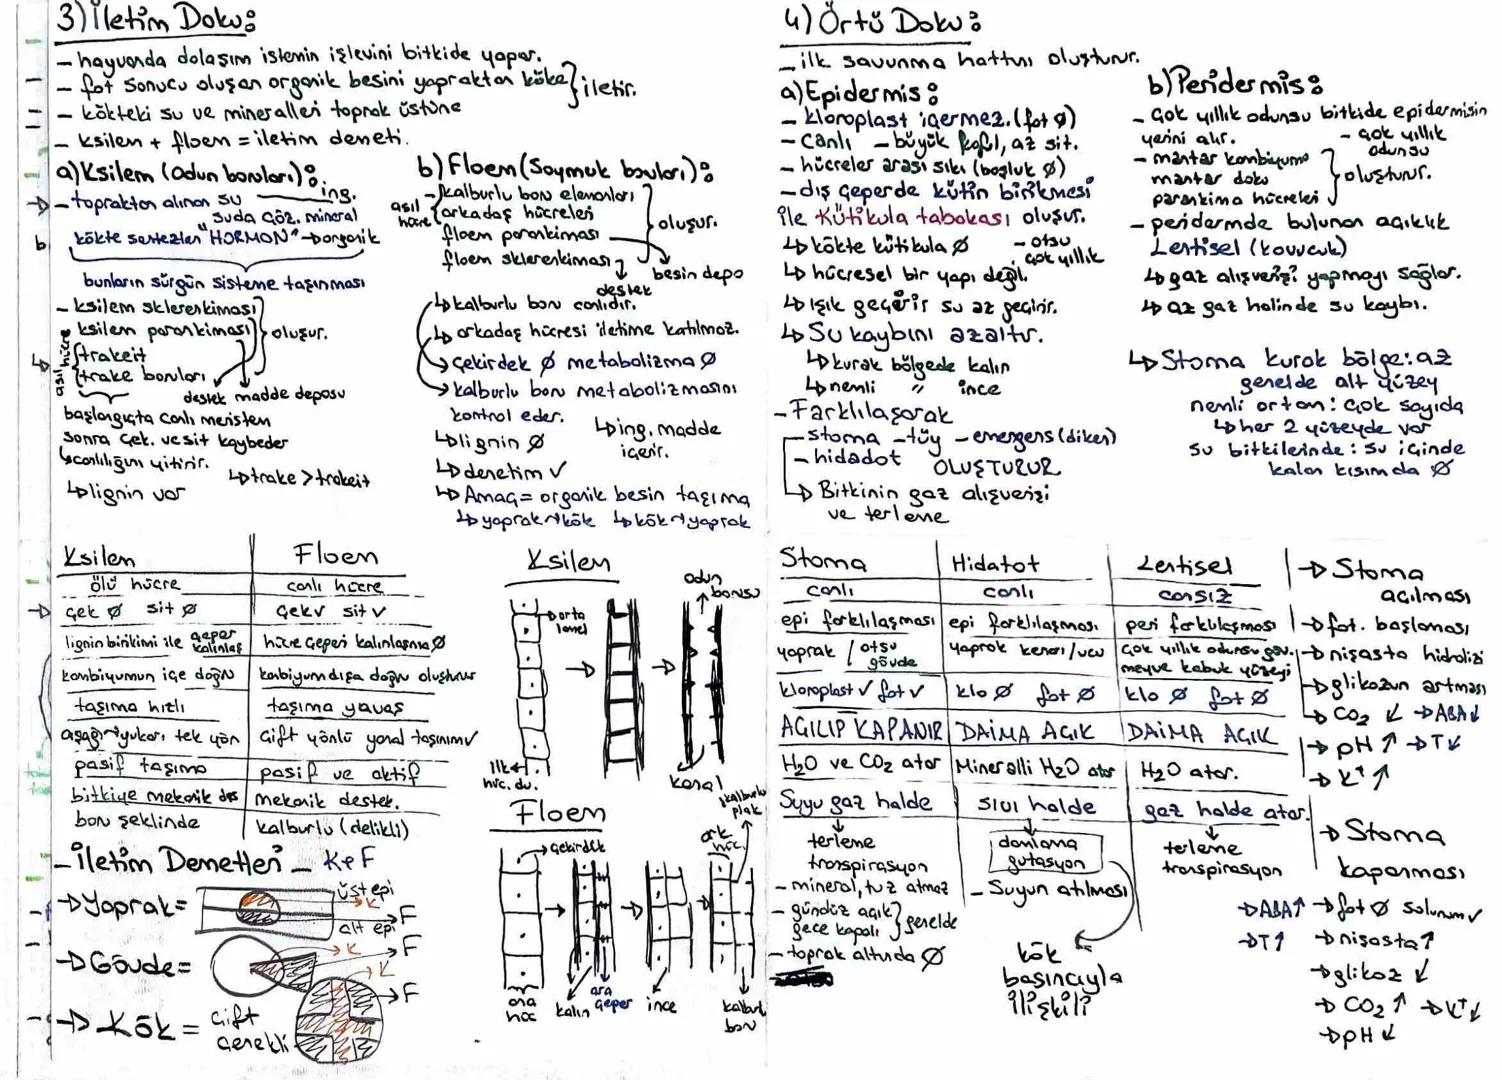 3) İletim Doku:
- hayvanda dolaşım istemin işlevini bitkide yapar.
- fot sonucu oluşan organik besini yapraktan köke
- kökteki su ve mineralleri toprak üstüne
iletir.
- ksilem + floem = iletim demeti.
a) Ksilem (Odun boruları):
- topraktan alınan su
ing.
suda çöz. mineral
kökte sentezlen "HORMON" → organik
bunların sürgün sisteme taşınması
- ksilem sklerenkiması
ksilem parankiması
trakeit
trake boruları
asıl hücre
oluşur.
destek madde deposu
başlangıçta canlı meristem
sonra çek. ve sit kaybeder
↳ canlılığını yitirir.
↳ trake > trakeit
↳ lignin var
b) Floem (Soymuk boruları):
asıl hücre
- kalburlu boru elemanları
arkadaş hücreleri
floem parankiması
floem sklerenkiması
oluşur.
besin depo
destek
↳ kalburlu boru canlıdır.
↳ arkadaş hücresi iletime katılmaz.
→ çekirdek Ø metabolizma Ø
→ kalburlu boru metabolizmasını
kontrol eder.
↳ lignin Ø
↳ ing. madde
içerir.
↳ denetim ✓
↳ Amaç = organik besin taşıma
↳ yaprak → kök ↳ kök → yaprak
4) Örtü Doku:
- ilk savunma hattını oluşturur.
a) Epidermis:
- kloroplast içermez. (fot Ø)
- canlı - büyük kofl, az sit.
- hücreler arası sıkı (boşluk Ø)
- dış çeperde kütin birikmesi
ile Kütikula tabakası oluşur.
↳ kökte kütikula Ø
- otsu
, çok yıllık
↳ hücresel bir yapı değil.
↳ Işık geçirir su az geçirir.
↳ Su kaybını azaltır.
↳ kurak bölgede kalın
↳ nemli " ince
- Farklılaşarak
- stoma - tüy - emergens (diken)
- hidadot OLUŞTURUR
↳ Bitkinin gaz alışverişi
ve terleme
b) Peridermis:
- çok yıllık odunsu bitkide epidermisin
yerini alır.
- çok yıllık
odunsu
- mantar kambiyumu
mantar doku
parankima hücreleri
oluşturur.
- peridermde bulunan açıklık
Lentisel (kovucuk)
↳ gaz alışverişi yapmayı sağlar.
↳ az gaz halinde su kaybı.
↳ Stoma kurak bölge: az
genelde alt yüzey
nemli ortam: çok sayıda
↳ her 2 yüzeyde var
su bitkilerinde: su içinde
kalan kısımda Ø
Ksilem | Floem
ölü hücre | canlı hücre
çek Ø sit Ø | çek ✓ sit ✓
lignin birikimi ile çeper kalınlaş | hücre çeperi kalınlaşma Ø
kambiyumun içe doğru | kabiyum dışa doğru oluşturur
taşıma hızlı | taşıma yavaş
aşağı → yukarı tek yön | çift yönlü yanal taşınım ✓
pasif taşıma | pasif ve aktif
bitkiye mekanik des | mekanik destek.
boru şeklinde | kalburlu (delikli)
Ksilem
orta lamel
odun borusu
ilk hüc. du.
kanal
Floem
çekirdek
ark hüc.
kalburlu plak
ana hüc
kalın
ara çeper
ince
kalburl boru
- İletim Demetleri - KpF
→ Yaprak =
üst epi
K
F
alt epi
→ Gövde =
F
K
→ Kök = çift
çenekli
K
F
Stoma | Hidatot | Lentisel
canlı | canlı | cansız
epi farklılaşması | epi farklılaşması | peri farklılaşması
yaprak / otsu gövde | yaprak kenarı/ucu | çok yıllık odunsu göv. meyve kabuk yüzeyi
kloroplast ✓ fot ✓ | klo Ø fot Ø | klo Ø fot Ø
AÇILIP KAPANIR | DAİMA AÇIK | DAİMA AÇIK
H₂O ve CO₂ atar | Mineralli H₂O atar | H₂O atar.
Suyu gaz halde | sıvı halde | gaz halde atar.
terleme
transpirasyon
damlama
gutasyon
terleme
transpirasyon
- mineral, tuz atmaz
- gündüz açık
gece kapalı
genelde
- toprak altında Ø
- Suyun atılması
kök
basıncıyla
ilişkili
→ Stoma
açılması
→ fot. başlaması
→ nişasta hidrolizi
→ glikozun artması
→ CO₂ ↓ → ABA ↓
→ pH ↑ → T ↓
→ K⁺ ↑
→ Stoma
kapanması
→ ABA ↑ → fot Ø solunum ✓
→ T ↑ → nişasta ↑
→ glikoz ↓
→ CO₂ ↑ → K⁺ ↓
→ pH ↓